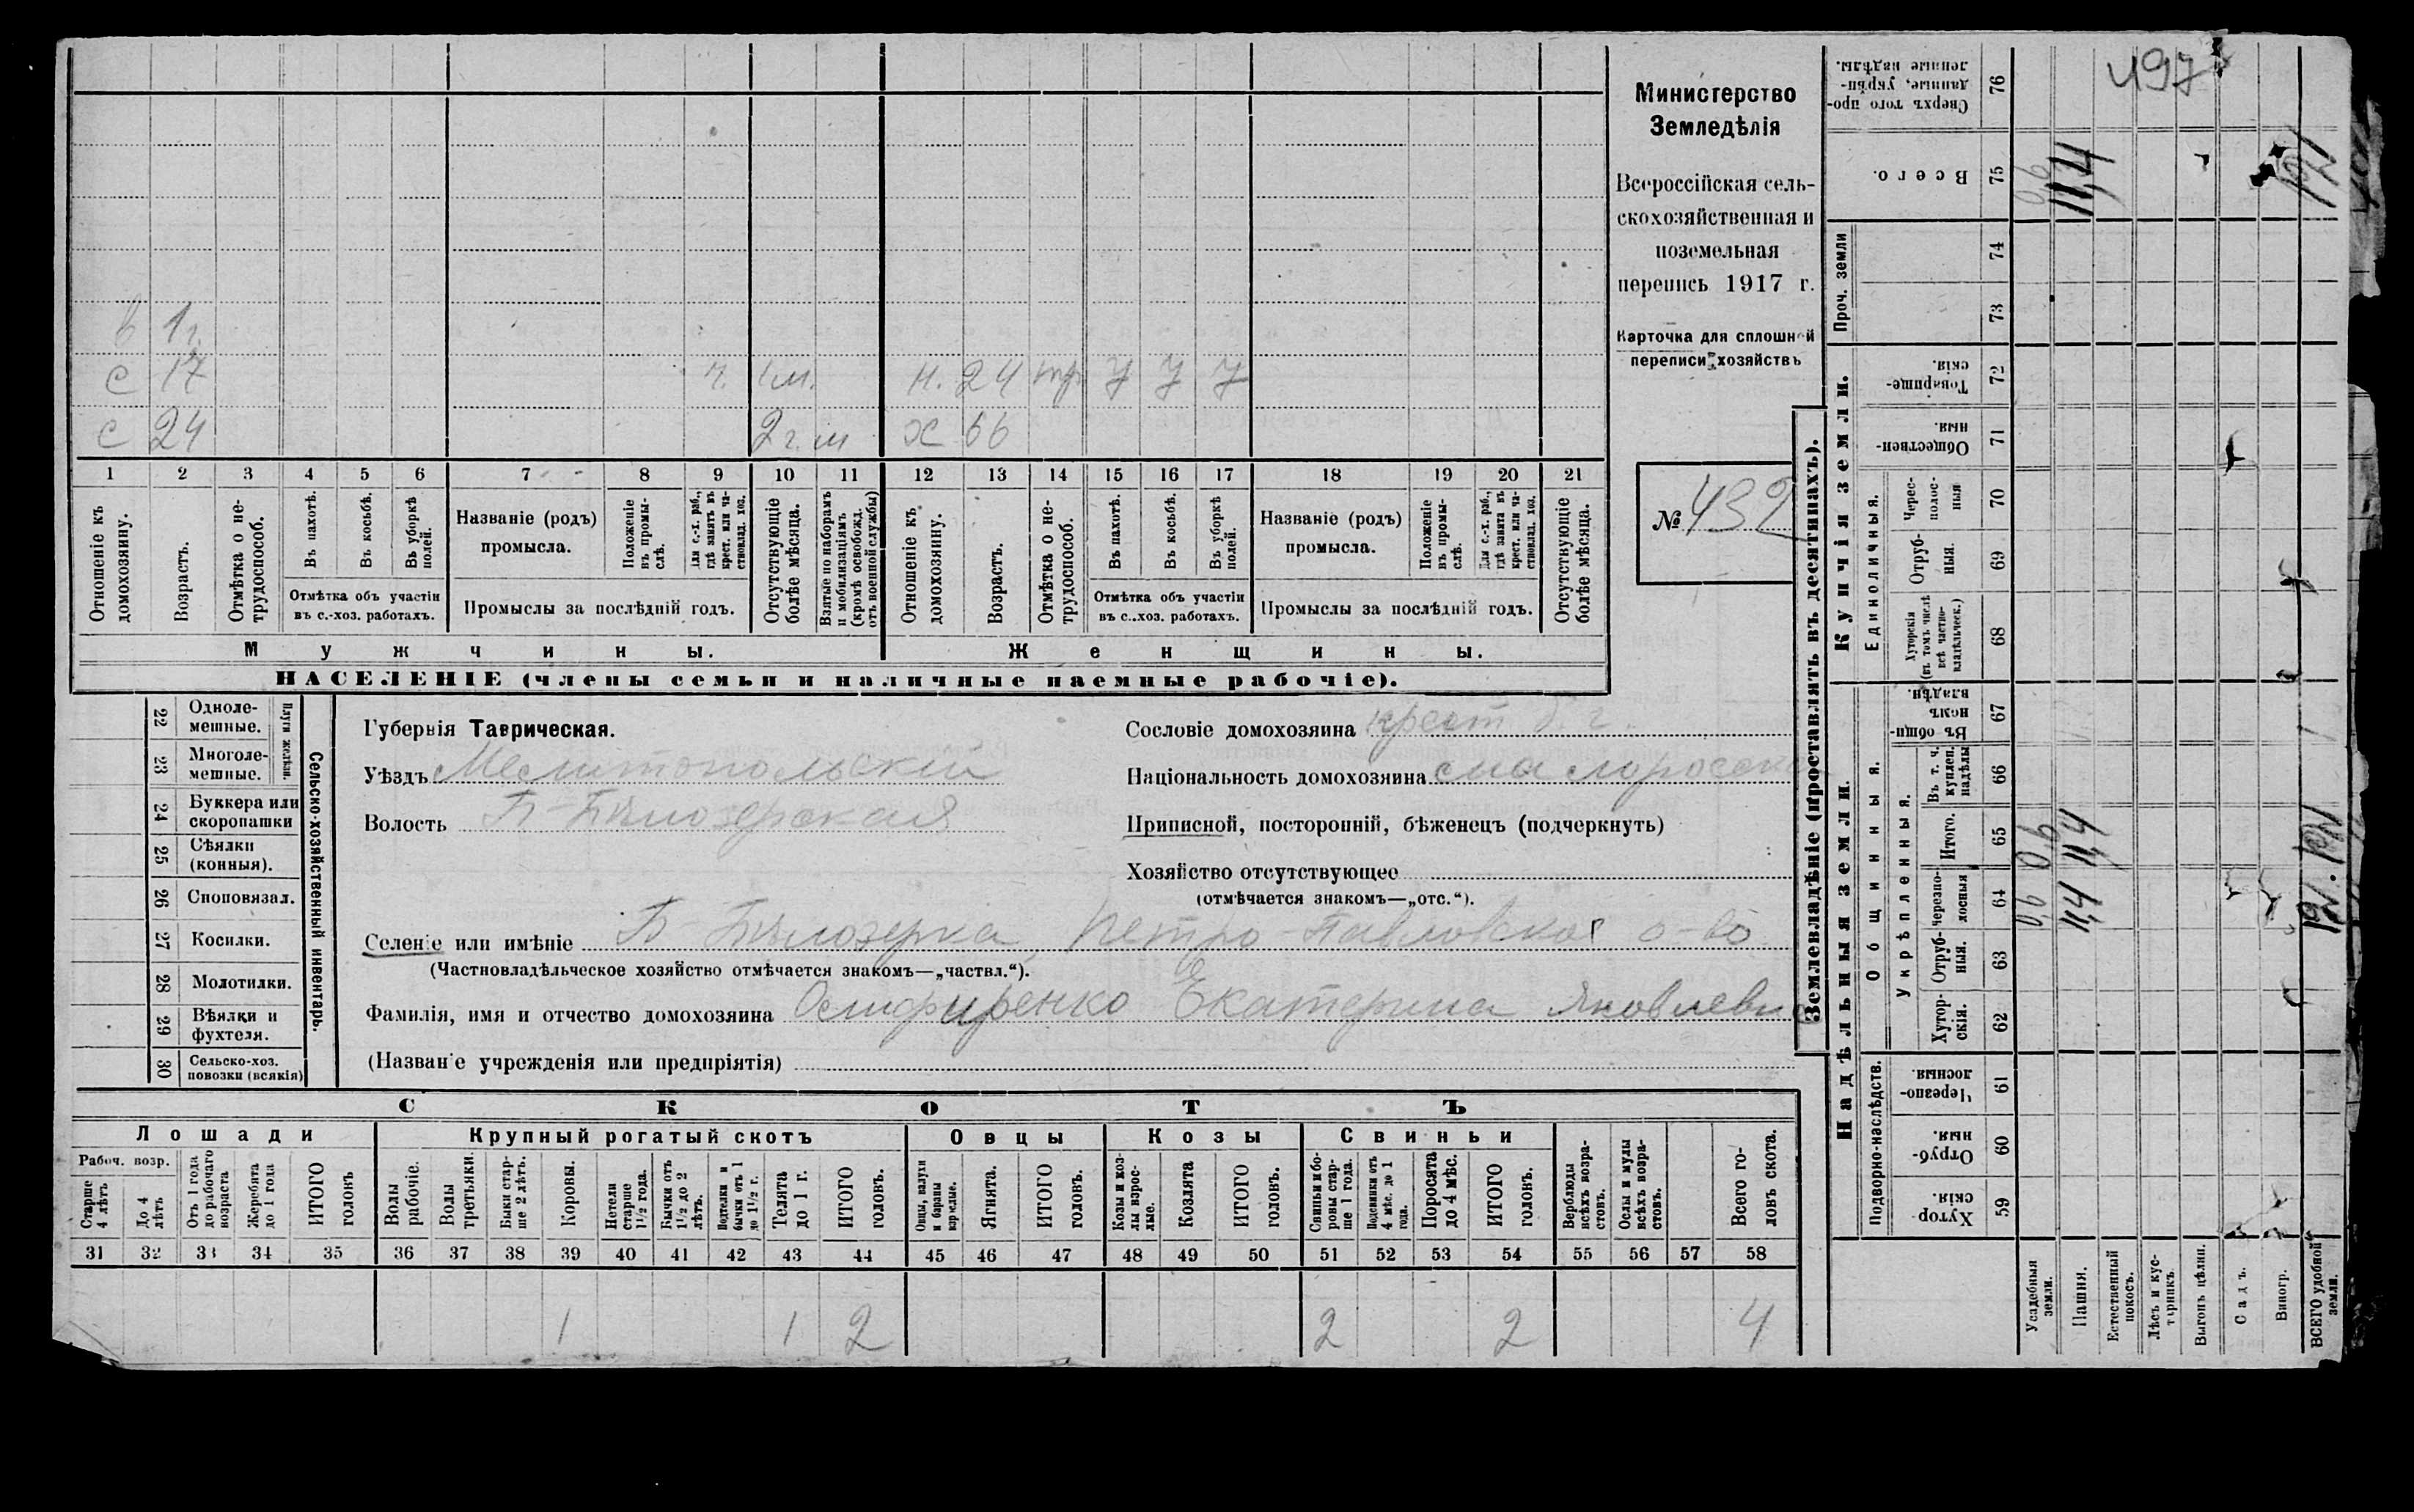 в 1 г.
с 17 ч. 1 м. н. 24 тр у у у
с 24 2 г. м х 66
1 2 3 4 5 6 7 8 9 10 11 12 13 14 15 16 17 18 19 20 21
Отношеніе къ домохозяину.
Возрастъ.
Отмѣтка о не-трудоспособ.
Въ пахотѣ.
Въ косьбѣ.
Въ уборкѣ полей.
Отмѣтка объ участіи
въ с.-хоз. работахъ.
Названіе (родъ)
промысла.
Положеніе въ промы-слѣ.
Для с.-х. раб., гдѣ занятъ въ крест. или ча-стновлад. хоз.
Промыслы за послѣдній годъ.
Отсутствующіе болѣе мѣсяца.
Взятые по наборамъ и мобилизаціямъ (кромѣ освобожд. отъ военной службы)
Отношеніе къ домохозяину.
Возрастъ.
Отмѣтка о не-трудоспособ.
Въ пахотѣ.
Въ косьбѣ.
Въ уборкѣ полей.
Отмѣтка объ участіи
въ с..хоз. работахъ.
Названіе (родъ)
промысла.
Положеніе въ промы-слѣ.
Для с.-х. раб., гдѣ занята въ крест. или ча-стновлад. хоз.
Промыслы за послѣдній годъ.
Отсутствующіе болѣе мѣсяца.
Мужчины. Женщины.
НАСЕЛЕНІЕ (члены семьи и наличные наемные рабочіе).
Министерство
Земледѣлія
Всероссійская сель-
скохозяйственная и
поземельная
перепись 1917 г.
Карточка для сплошной
переписи хозяйствъ
№ 432
Сельско-хозяйственный инвентарь.
Плуги желѣзн.
22 Одноле-мешные.
23 Многоле-мешные.
24 Буккера или скоропашки
25 Сѣялки (конныя).
26 Сноповязал.
27 Косилки.
28 Молотилки.
29 Вѣялки и фухтеля.
30 Сельско-хоз. повозки (всякія)
Губернія Таврическая.
Уѣздъ Мелитопольскій
Волость Б-Бѣлозерская
Сословіе домохозяина крест. б. г.
Національность домохозяина малоросс
Приписной, посторонній, бѣженецъ (подчеркнуть)
Хозяйство отсутствующее
(отмѣчается знакомъ—„отс.“).
Селеніе или имѣніе Б-Бѣлозерка, Петро-Павловское о-во
(Частновладѣльческое хозяйство отмѣчается знакомъ—„частвл.“).
Фамилія, имя и отчество домохозяина Екатерина Яковлевна
(Названіе учрежденія или предпріятія)
СКОТЪ
Лошади Крупный рогатый скотъ Овцы Козы Свиньи
Рабоч. возр.
Старше 4 лѣтъ
До 4 лѣтъ
Отъ 1 года до рабочаго возраста
Жеребята до 1 года
ИТОГО головъ
Волы рабочіе.
Волы третьяки.
Быки стар-ше 2 лѣтъ.
Коровы.
Нетели старше 1½ года.
Бычки отъ 1½ до 2 лѣтъ.
Подтелки и бычки отъ 1 до 1½ г.
Телята до 1 г.
ИТОГО головъ.
Овцы, валухи и бараны взрослые.
Ягнята.
ИТОГО головъ.
Козы и коз-лы взрос-лые.
Козлята
ИТОГО головъ.
Свиньи и бо-ровы стар-ше 1 года.
Подсвинки отъ 4 мѣс. до 1 года.
Поросята до 4 мѣс.
ИТОГО головъ.
Верблюды всѣхъ возра-стовъ.
Ослы и мулы всѣхъ возра-стовъ.
Всего го-ловъ скота.
31 32 33 34 35 36 37 38 39 40 41 42 43 44 45 46 47 48 49 50 51 52 53 54 55 56 57 58
1 1 2 2 2 4
Землевладѣніе (проставлять въ десятинахъ).
Надѣльныя земли. Купчія земли. Проч. земли
Подворно-наслѣдств.
Общинныя.
Укрѣпленныя.
Единоличныя.
59 Хутор-скія.
60 Отруб-ныя.
61 Черезпо-лосныя.
62 Хутор-скія.
63 Отруб-ныя.
64 Черезпо-лосныя
65 Итого.
66 Въ т. ч. куплен. надѣлы
67 Въ общин-номъ владѣн.
68 Хуторскія (въ томъ числѣ всѣ частно-владѣльческ.)
69 Отруб-ныя.
70 Черес-полос-ныя
71 Обществен-ныя.
72 Товарище-скія.
73
74
75 Всего.
76 Сверхъ того про-данные, укрѣп-ленные надѣлы.
Усадебныя земли.
Пашня.
Естественный покосъ.
Лѣсъ и кус-тарникъ.
Выгонъ цѣлин.
Садъ.
Виногр.
ВСЕГО удобной земли.
497